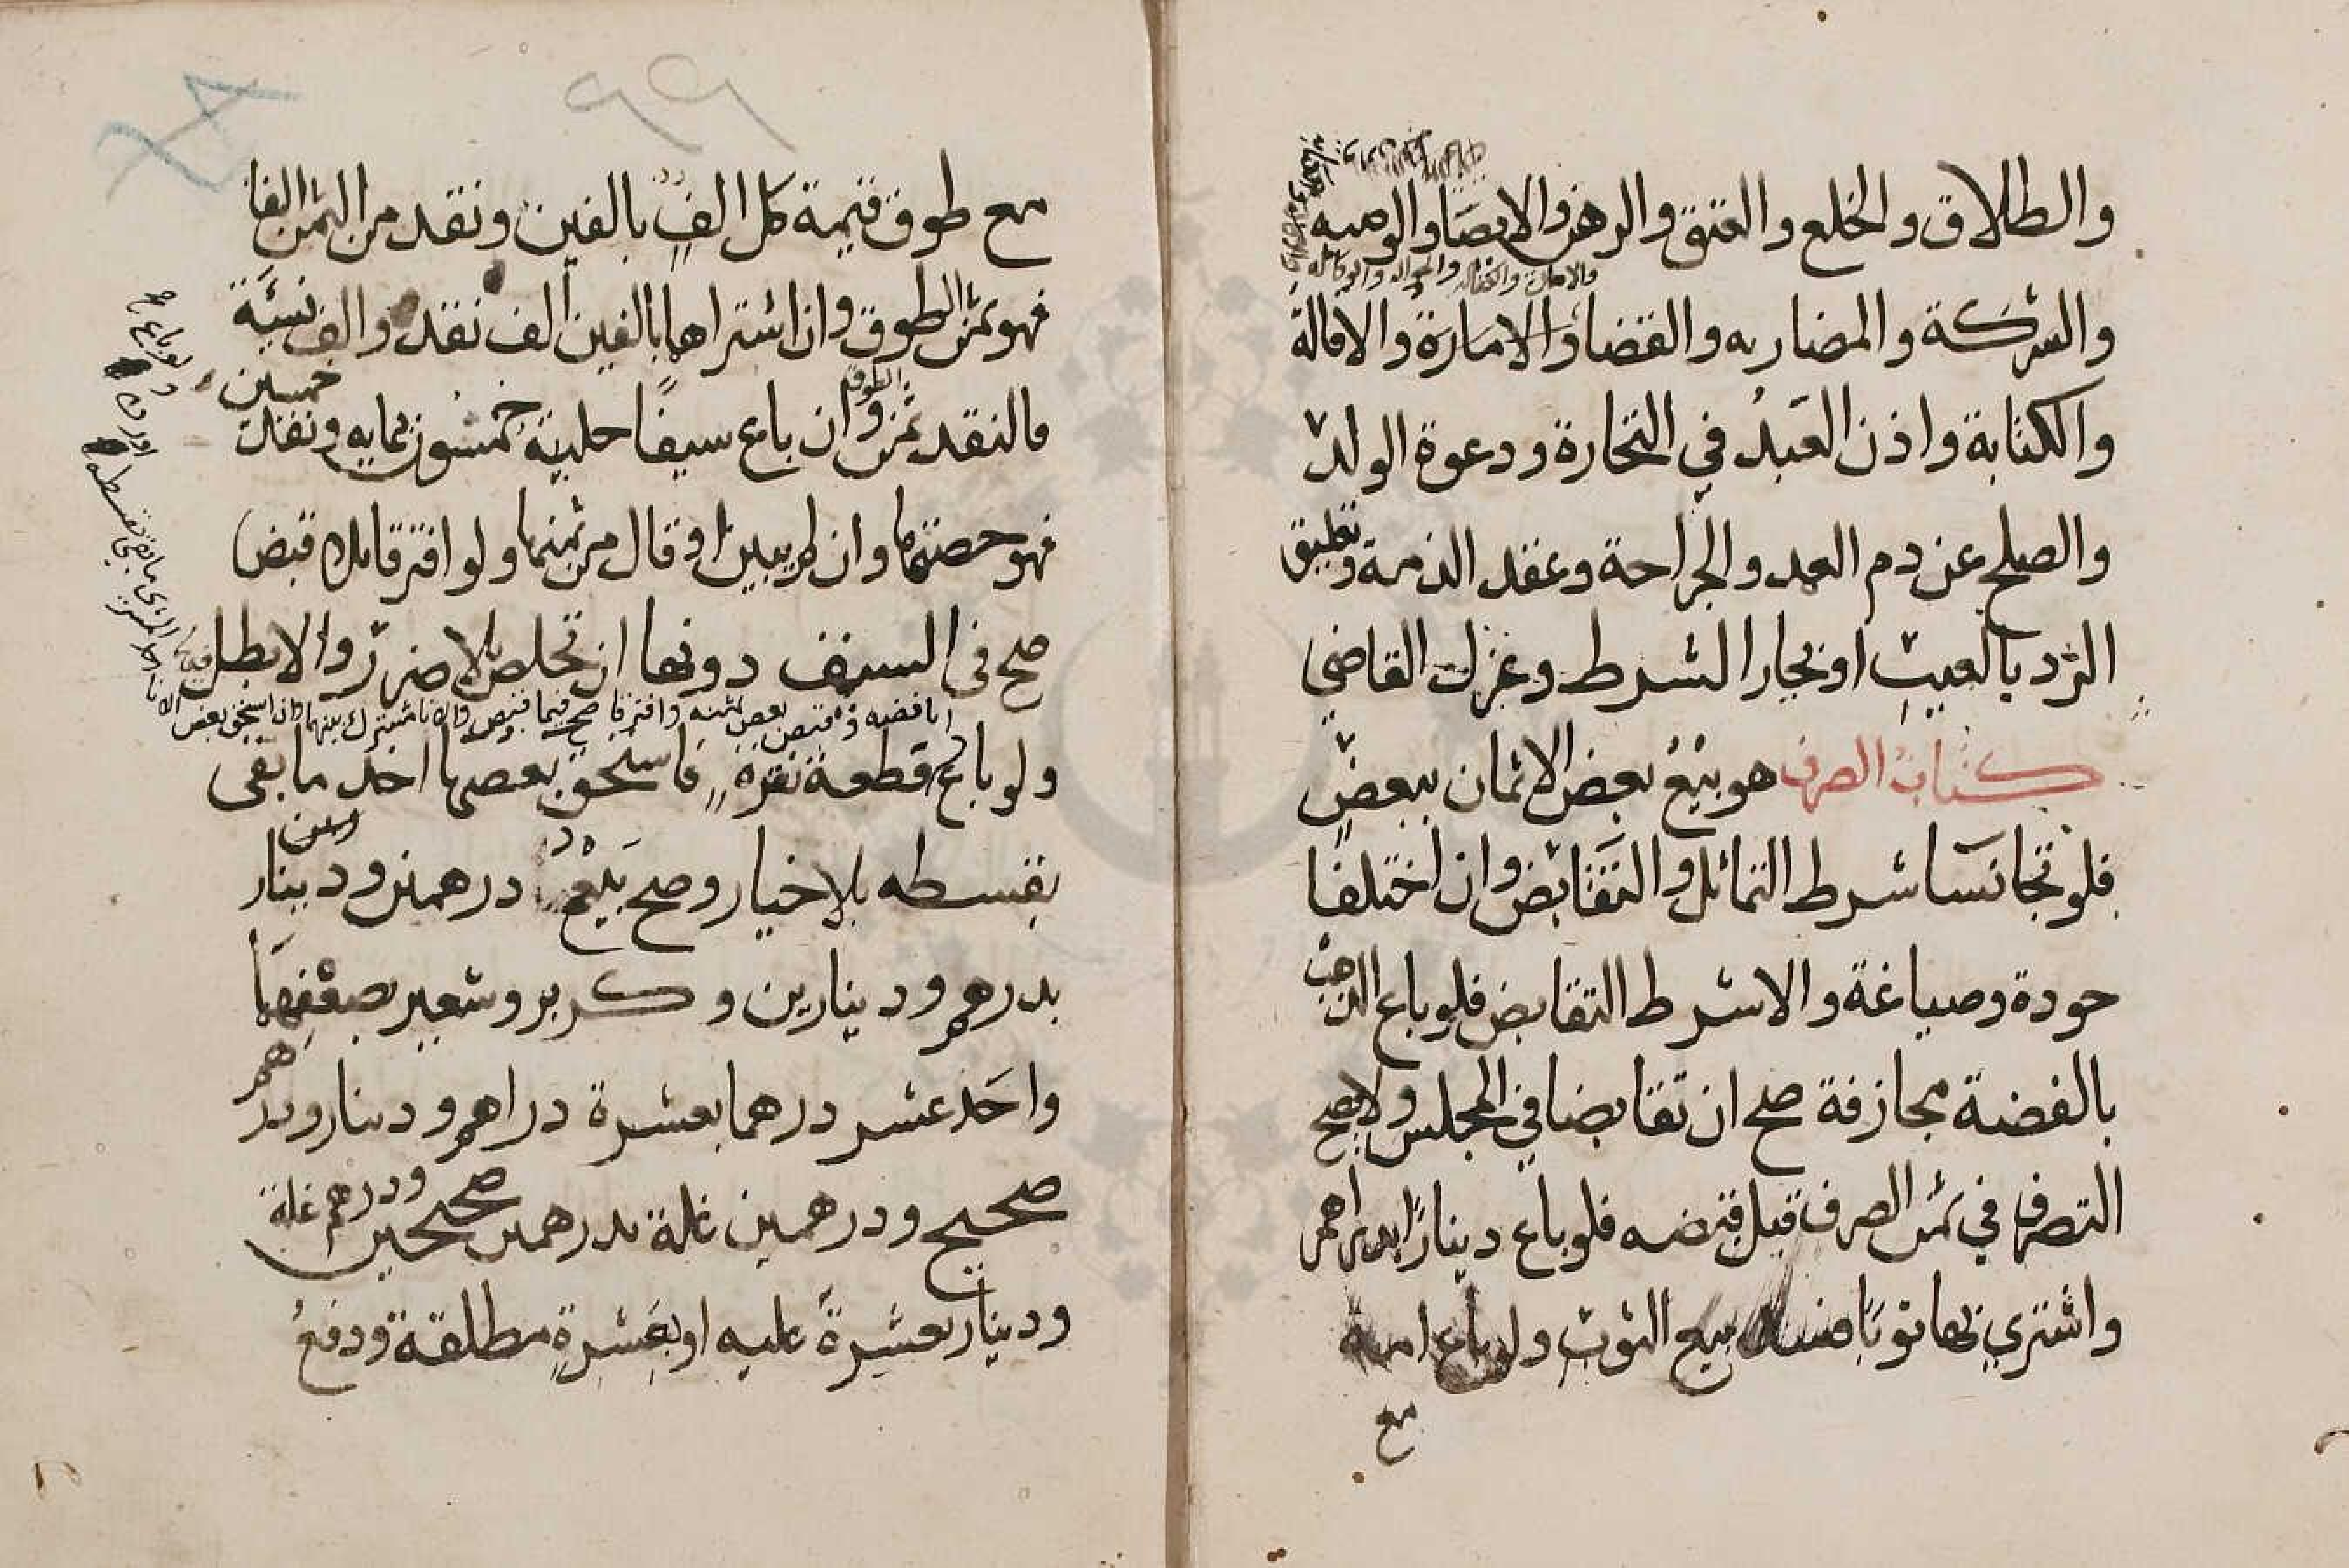 والطلاق والخلع والعتق والرهن والايصا والوصيه
والشركة والمضاربه والقضا والامارة والاقالة
والكفاله والحواله والوكاله
والكتابة واذن العبد في التجارة ودعوة الولد
والصلح عن دم العمد والجراحة وعقد الذمة وتعليق
الرد بالعيب او بخيار الشرط وعزل القاضي
كتاب الصرف هو بيع بعض الاثمان ببعض
فلو تجانسا شرط التماثل والتقابض وان اختلفا
جودة وصياغة والا شرط التقابض فلو باع الذهب
بالفضة مجازفة صح ان تقابضا في المجلس ولا يصح
التصرف في ثمن الصرف قبل قبضه فلو باع دينارا بدراهم
واشتري بها ثوبا فسد بيع الثوب ولو باع امة
مع
٩٩
مع طوق قيمة كل الف بالفين ونقد من الثمن الفا
فهو ثمن الطوق وان اشتراها بالفين الف نقد والف نسيئة
فالنقد ثمن الطوق وان باع سيفا حليته خمسون بمايه ونقد خمسين
فهو حصتها وان لم يبين او قال من ثمنها ولو افترقا بلا قبض
صح في السيف دونها ان تخلص بلا ضرر والا بطل
انا فضه وقبض بعض ثمنه وافترقا صح فيما قبض والانا مشترك بينهما وان استحق بعض الانا
ولو باع قطعة نقرة فاستحق بعضها اخذ ما بقى
بقسطه بلا خيار وصح بيع درهمين ودينار
بدرهم ودينارين وكر بر وشعير بضعفهما
واحد عشر درهما بعشرة دراهم ودينار ودرهم
صحيح ودرهمين غلة بدرهمين صحيحين ودرهم غلة
ودينار بعشرة عليه او بعشرة مطلقة ودفع